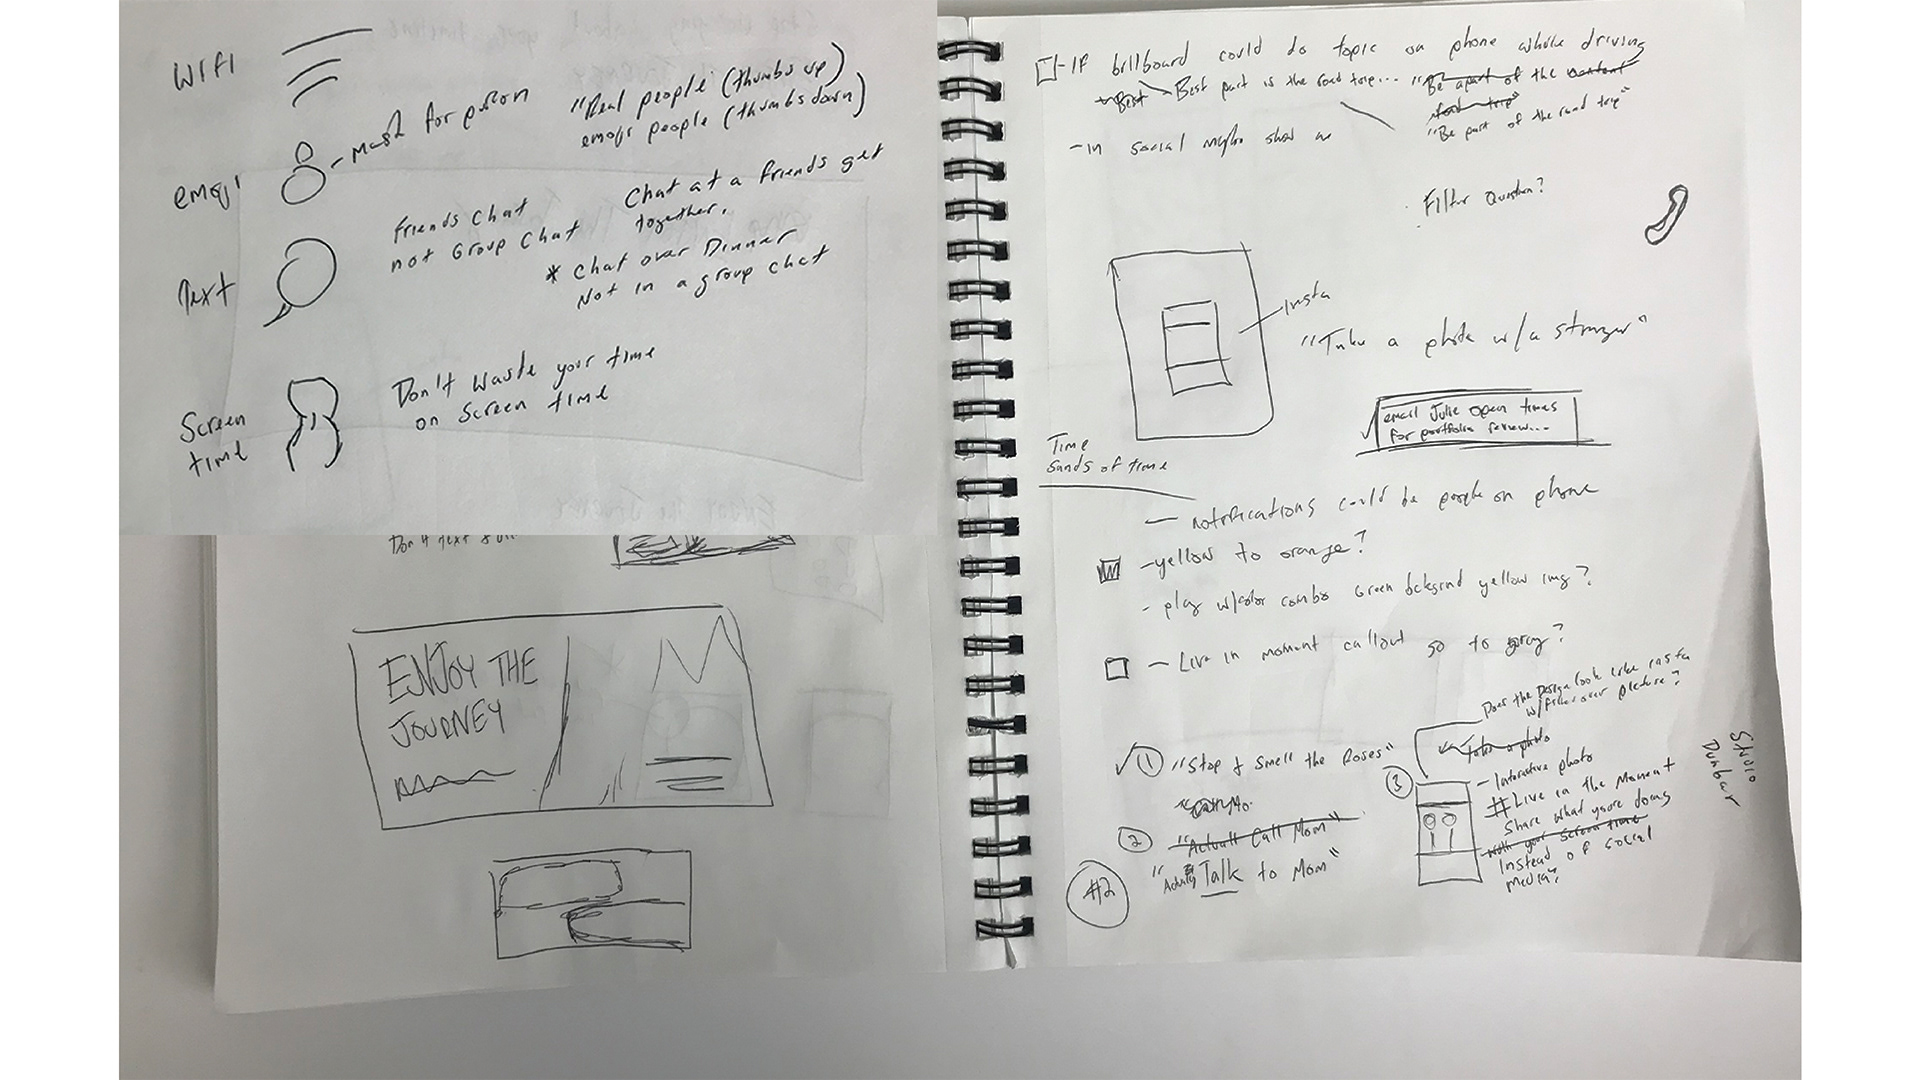 WIFI
emoji
mask for person
"Real people (thumbs up)
emoji people (thumbs down)
Text
friends chat
not Group Chat
Chat at a friends get
together.
* Chat over Dinner
Not in a group chat
Screen
time
Don't waste your time
on screen time
Don't text &
ENJOY THE
JOURNEY
- If billboard could do topic on phone while driving
Best - Best part is the road trip... "Be apart of the
road trip"
"Be part of the road trip"
- in social show
Filter Question?
Insta
"Take a photo w/a stranger"
email Julie open times
for portfolio review...
Time
Sands of time
- notifications could be people on phone
- yellow to orange?
- play w/color combo Green yellow img?
- Live in moment callout go to gray?
Does the Design look like insta
w/ filter over picture?
① "Stop & Smell the Roses"
② "Actuall Call Mom"
"Actually Talk to Mom"
#2
③
Take a photo
- Interactive photo
# Live in the Moment
Share what youre doing
with your screen time
Instead of social
media?
Studio
Dunbar